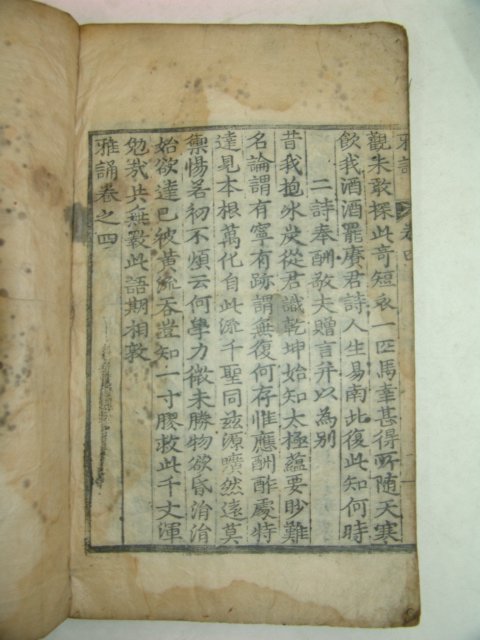 雅誦 卷四
觀朱敢探此奇短衣一匹馬幸甚得所隨天寒
飲我酒酒罷賡君詩人生易南北復此知何時
二詩奉酬敬夫贈言并以為別
昔我抱氷炭從君識乾坤始知太極蘊要眇難
名論謂有寧有跡謂無復何存惟應酬酢處特
達見本根萬化自此流千聖同兹源曠然遠莫
禦惕若初不煩云何學力微未勝物欲昏涓涓
始欲達已被黃流吞豈知一寸膠救此千丈渾
勉哉共無斁此語期相敦
雅誦卷之四